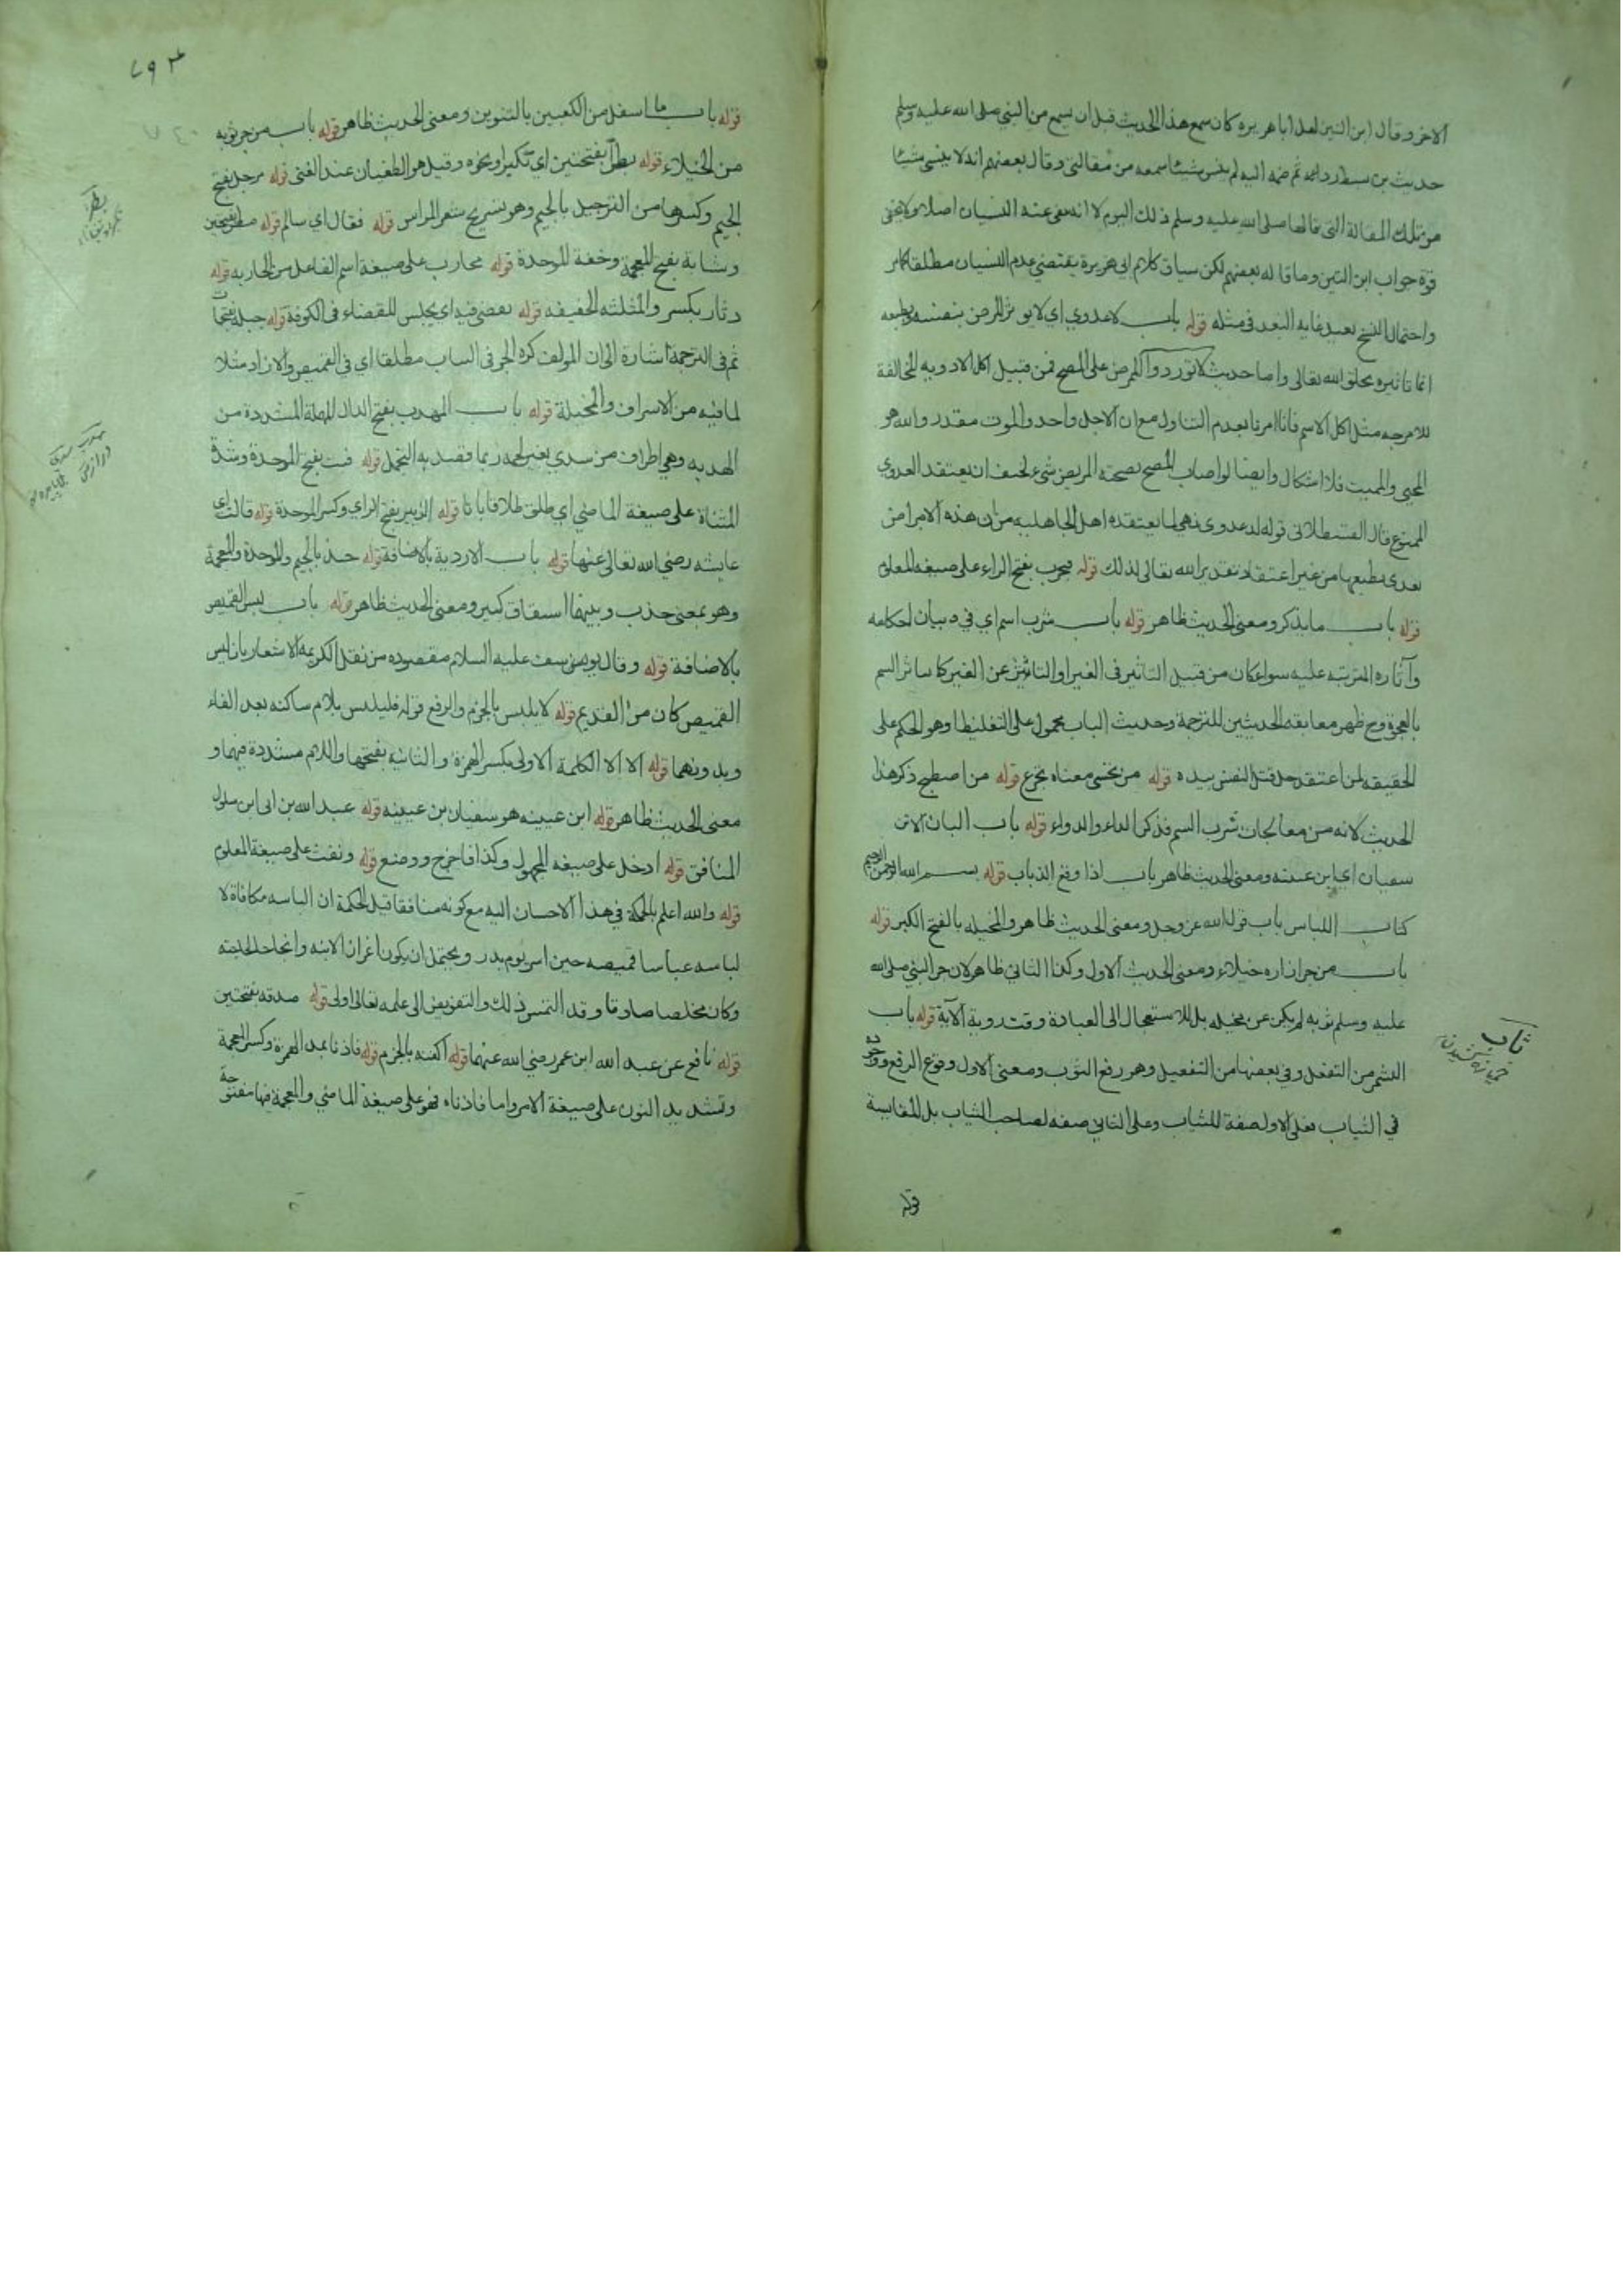 الاخر وقال ابن التين لعل ابا هريره كان سمع هذا الحديث قبل ان يسمع من النبي صلى الله عليه وسلم
حديث من بسط رداءه ثم ضمه اليه لم ينس شيئا سمعه من مقالتي وقال بعضهم انه لا ينسى شيئا
من تلك المقالة التي قالها صلى الله عليه وسلم ذلك اليوم لا انه نفى عنه النسيان اصلا ولا يخفى
قوة جواب ابن التين وما قاله بعضهم لكن سياق كلام ابي هريرة يقتضي عدم النسيان مطلقا كامر
واحتمال النسخ بعيد غاية البعد في مثله قوله باب لا عدوي اي لا يوثر المرض بنفسه وطبعه
انما تاثيره بخلق الله تعالى واما حديث لا توردوا الممرض على المصح فمن قبيل اكل الادويه المخالفة
للامزجه مثل اكل الاسم فانا امرنا بعدم التناول مع ان الاجل واحد والموت مقدر والله هو
المحيي والمميت فلا اشكال وايضا لو اصاب المصح بصحته المريض شيء لخيف ان يعتقد العدوي
الممنوع قال القسطلاني قوله لا عدوى نهي لما يعتقده اهل الجاهليه من ان هذه الامراض
تعدي بطبعها من غير اعتقاد تقدير الله تعالى لذلك قوله يجرب بفتح الراء على صيغه المعلوم
قوله باب ما يذكر ومعنى الحديث ظاهر قوله باب شرب اسم اي في بيان احكامه
وآثاره المترتبه عليه سواء كان من قبيل التاثير في الغير او التاثير عن الغير كما سائر السم
بالعجوة وح ظهر مطابقه الحديثين للترجمة وحديث الباب محمول على التغليظ او هو الحكم على
الحقيقه لمن اعتقد حل قتل النفس بيده قوله من تحسى معناه تجرع قوله من اصطبح ذكر هذا
الحديث لانه من معالجات شرب السم فذكر الداء والدواء قوله باب البان الاتن
سفيان اي ابن عيينه ومعنى الحديث ظاهر باب اذا وقع الذباب قوله بسم الله الرحمن الرحيم
كتاب اللباس باب قول الله عز وجل ومعنى الحديث ظاهر والمخيله بالفتح الكبر قوله
باب من جر ازاره خيلاء ومعنى الحديث الاول وكذا الثاني ظاهر لان جر النبي صلى الله
عليه وسلم ثوبه لم يكن عن مخيله بل للاستعجال الى العبادة وقت روية الآية قوله باب
التشمر من التفعل وفي بعضها من التفعيل وهو رفع الثوب ومعنى الاول وقوع الرفع ووجوده
في الثياب فعلى الاول صفة للثياب وعلى الثاني صفه لصاحب الثياب بل للمقابسة
قوله
قوله باب ما اسفل من الكعبين بالتنوين ومعنى الحديث ظاهر قوله باب من جر ثوبه
من الخيلاء قوله بطرا بفتحتين اي تكبرا ونحوه وقيل هو الطغيان عند الغنى قوله مرجل بفتح
الجيم وكسرها من الترجيل بالجيم وهو تسريح شعر الراس قوله فقال اي سالم قوله مطر بفتحتين
وشابة بفتح المعجمة وخفة الموحدة قوله محارب على صيغة اسم الفاعل من المحاربه قوله
دثار بكسر والمثلثه الخفيفه قوله يقضي فيه اي يجلس للقضاء في الكوفة قوله جبلة بفتحات
ثم في الترجمة اشارة الى ان المولف كره الجر في الباب مطلقا اي في القميص والازار مثلا
لما فيه من الاسراف والمخيلة قوله باب المهدب بفتح الدال المهملة المشددة من
الهدبه وهي اطراف من سدي بغير لحمه ربما قصد به التجمل قوله فبت بفتح الموحدة وشدة
المثناة على صيغة الماضي اي طلق طلاقا باتا قوله الزبير بفتح الزاي وكسر الموحدة قوله قالت اي
عايشه رضي الله تعالى عنها قوله باب الاردية بالاضافة قوله جبذ بالجيم والموحدة والمعجمة
وهو بمعنى جذب وبينهما اشتقاق كبير ومعنى الحديث ظاهر قوله باب لبس القميص
بالاضافة قوله وقال يوسف عليه السلام مقصوده من نقل الكريمه الاشعار بان لبس
القميص كان من القديم قوله لا يلبس بالجزم والرفع قوله فليلبس بلام ساكنه بعد الفاء
وبدونهما قوله الا الا الكلمة الاولى بكسر الهمزة والثانيه بفتحها واللام مشددة فيهما و
معنى الحديث ظاهر قوله ابن عيينه هو سفيان بن عيينه قوله عبد الله بن ابى ابن سلول
المنافق قوله ادخل على صيغه المجهول وكذا فاخرج ووضع قوله ونفث على صيغة المعلوم
قوله والله اعلم بالحكمة في هذا الاحسان اليه مع كونه منافقا قيل الحكمة ان الباسه مكافاة لا
لباسه عباسا قميصه حين اسر يوم بدر ويحتمل ان يكون اعزاز الابنه وانجاحا لحاجته
وكان مخلصا صادقا وقد التمس ذلك والتفويض الى علمه تعالى اولى قوله صدقه بفتحتين
قوله نافع عن عبد الله ابن عمر رضي الله عنهما قوله اكفنه بالجزم قوله فاذنا بمد الهمزة وكسر المعجمة
وتشديد النون على صيغة الامر واما فاذناه فهو على صيغة الماضي والمعجمة فيها مفتوحة